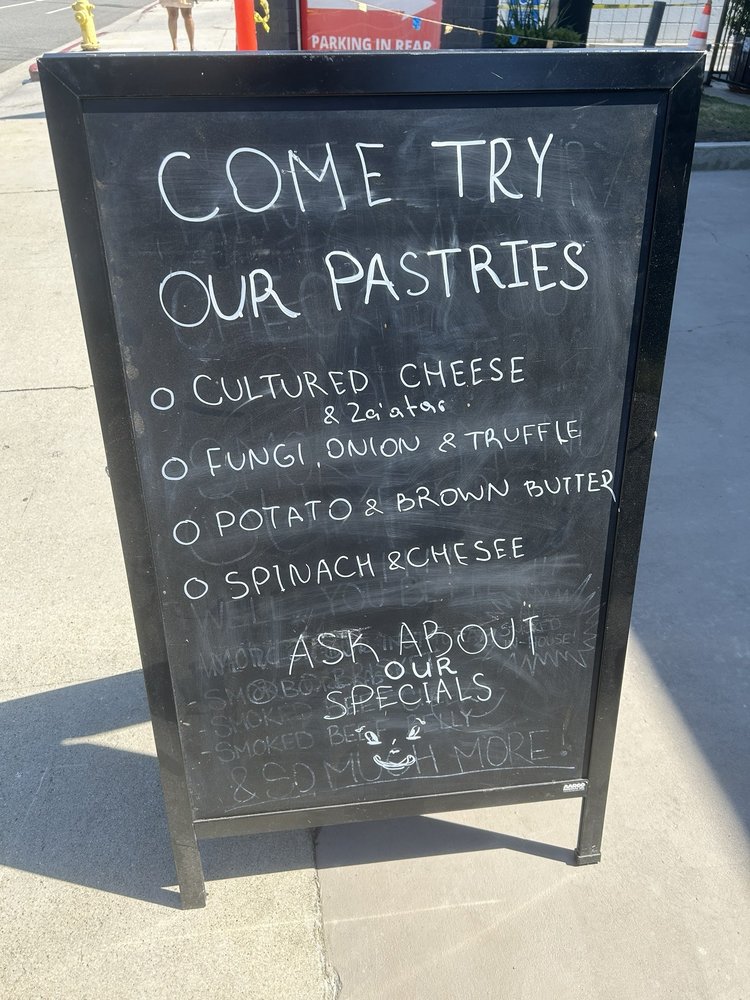 PARKING IN REAR
COME TRY
OUR PASTRIES
CULTURED CHEESE
& Za'atar
FUNGI, ONION & TRUFFLE
POTATO & BROWN BUTTER
SPINACH & CHESEE
ASK ABOUT
OUR
SPECIALS
SMOKED BEEF BELLY
& SO MUCH MORE!
AARCO